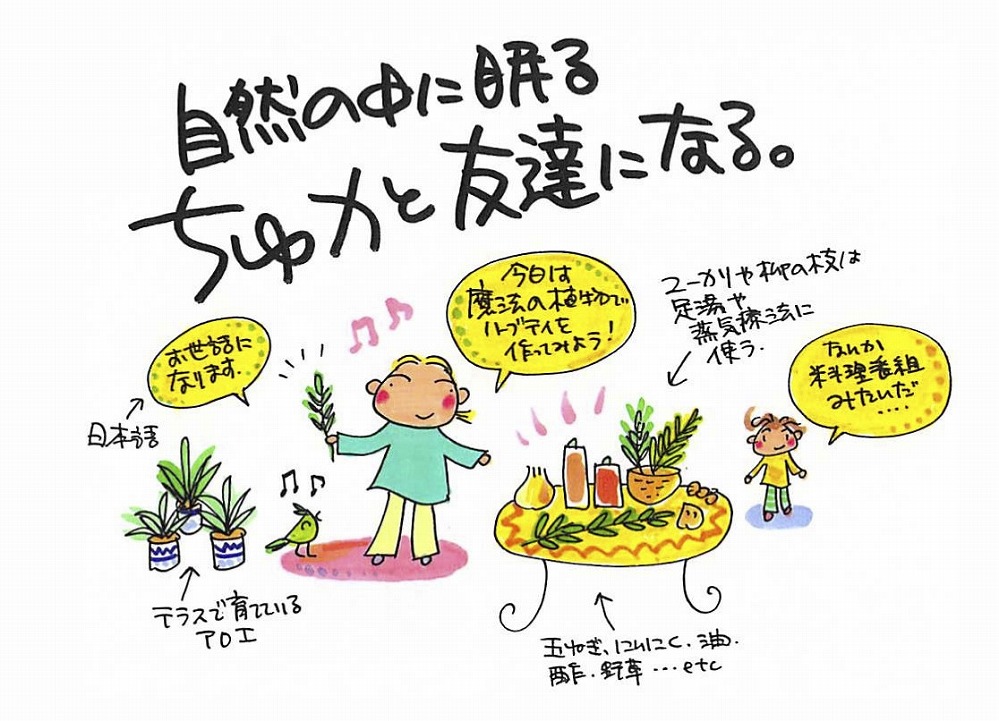 自然の中に眠る
ちゅ力と友達になる。
今日は
魔法の植物で
ハーブティを
作ってみよう!
ユーカリや柳の枝は
足湯や
蒸気療法に
使う.
お世話に
なります.
日本語
なんか
料理番組
みたいだ
....
テラスで育てている
アロエ
玉ねぎ、にんにく、油.
酢.野草…etc